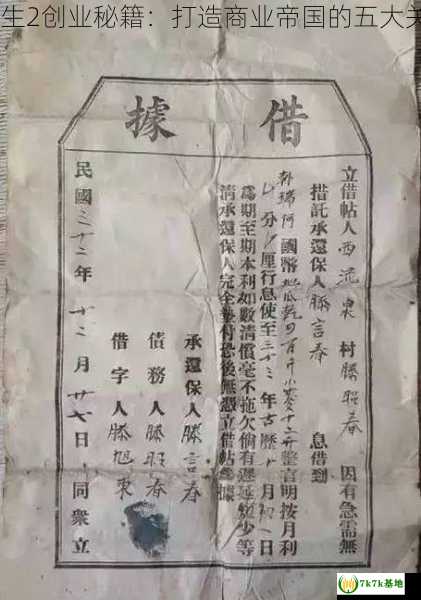 生2创业秘籍：打造商业帝国的五大关
借據
立借帖人西流泉村滕昭春因有急需無
措託承還保人滕言春息借到
國幣地瓜乾四百斤小麥十二斤整言明按月利
分厘行息使至三十三年古歷十月初一日
為期至期本利如數清償毫不拖欠倘有遲延短少等
清承還保人完全墊付恐後無憑立借帖為據
承還保人滕言春
債務人滕昭春
借字人滕旭東
民國三十二年十二月廿七日同眾立
7k7k基地